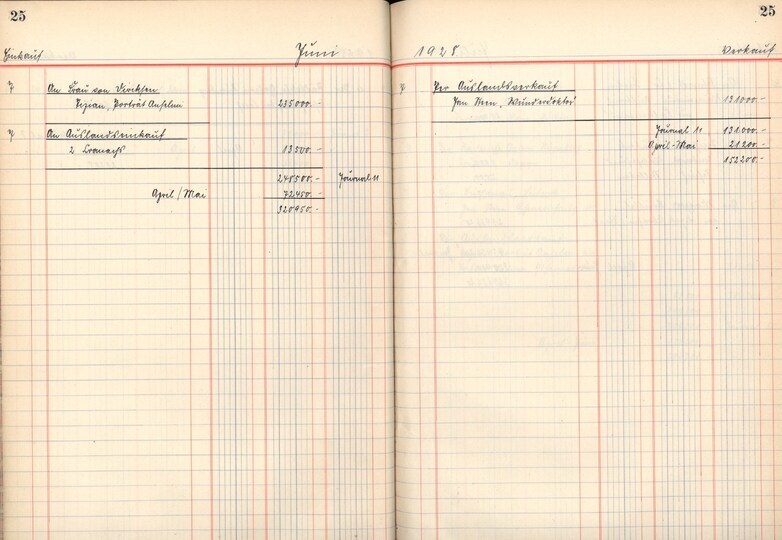 25
Einkauf Juni
7 An Frau von Dirksen
Tizian, Porträt Anselmi 235000.-
7 An Auslandseinkauf
2 Cranachs 13500.-
248500.- Journal 11
April / Mai 72450.-
320950.-
25
1928 Verkauf
7 Per Auslandsverkauf
Jan Steen, "Wunderdoktor" 131000.-
Journal 11 131000.-
April-Mai 21200.-
152200.-